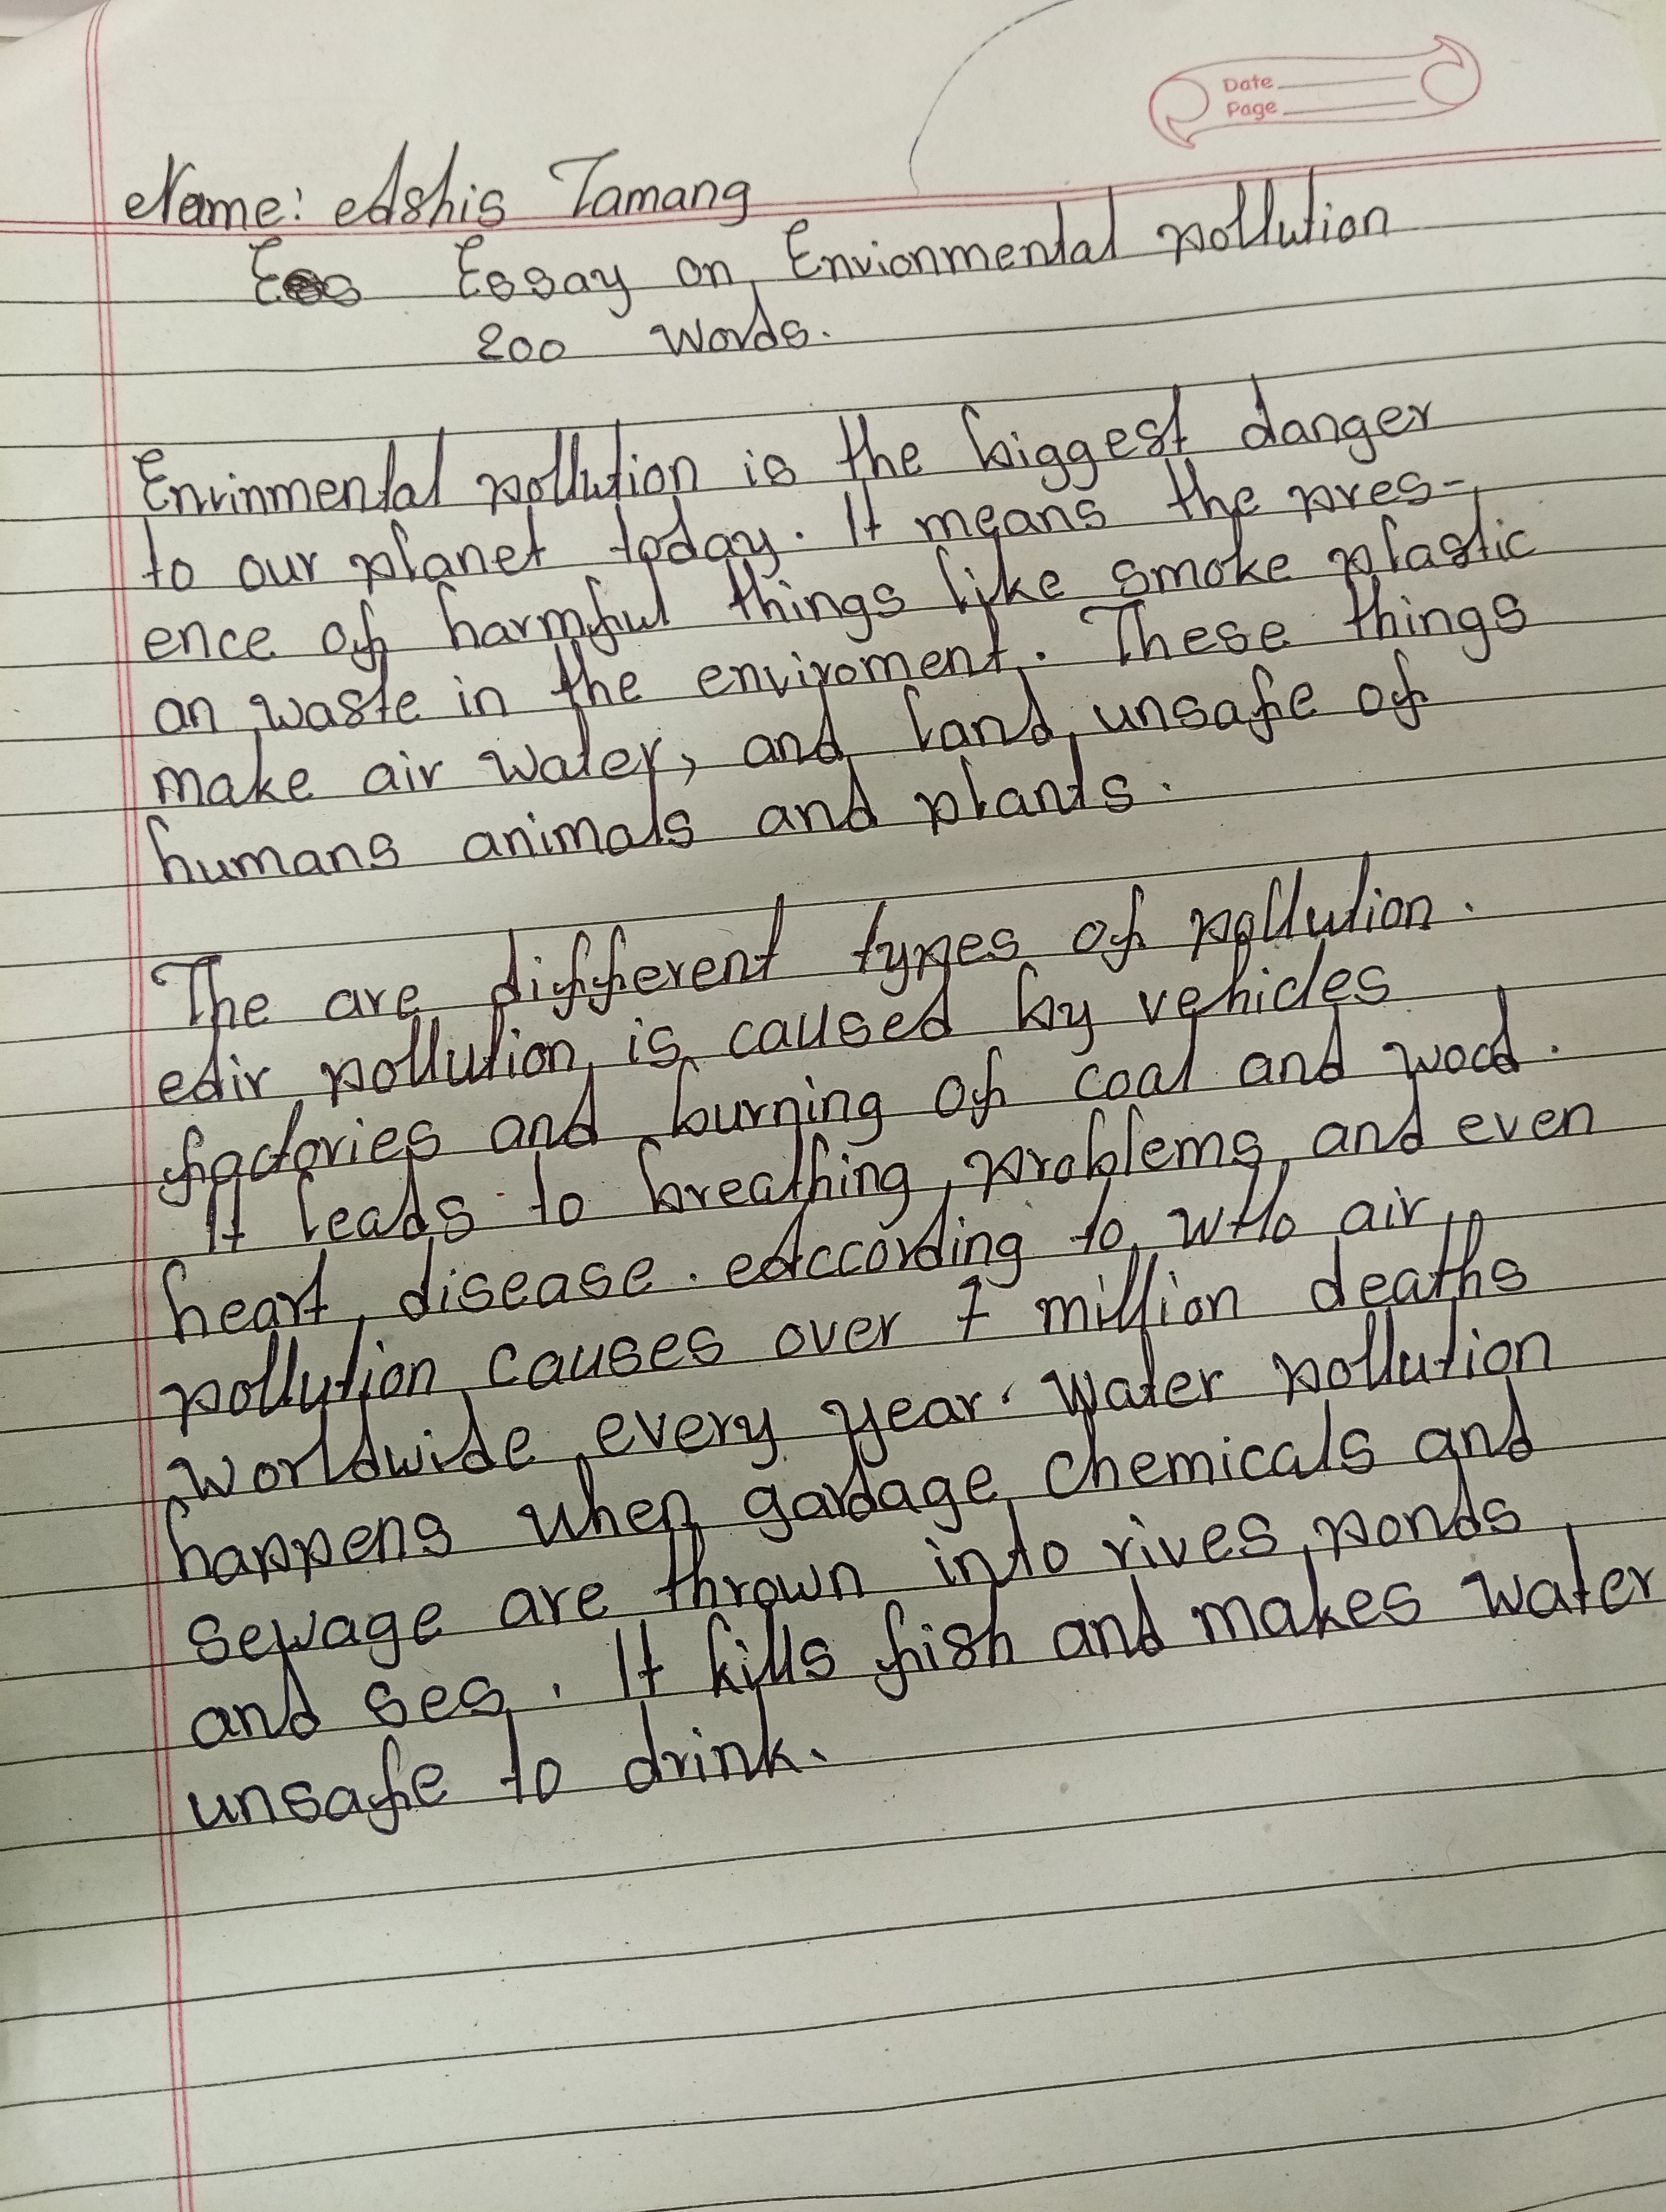 Date
Page
Name: Ashis Tamang
Ess Essay on Envionmental pollution
200 Words.
Envinmental pollution is the biggest danger
to our planet today. It means the pres-
ence of harmful things like smoke plastic
an waste in the enviroment. These things
make air Water, and land unsafe of
humans animals and plants.
The are different types of pollution.
Air pollution is caused by vehicles
factories and burning of coal and wood.
It leads to breathing problems and even
heart disease. According to WHO air
pollution causes over 7 million deaths
worldwide every year. Water pollution
happens when garbage chemicals and
sewage are thrown into rives ponds
and ses. It kills fish and makes water
unsafe to drink.